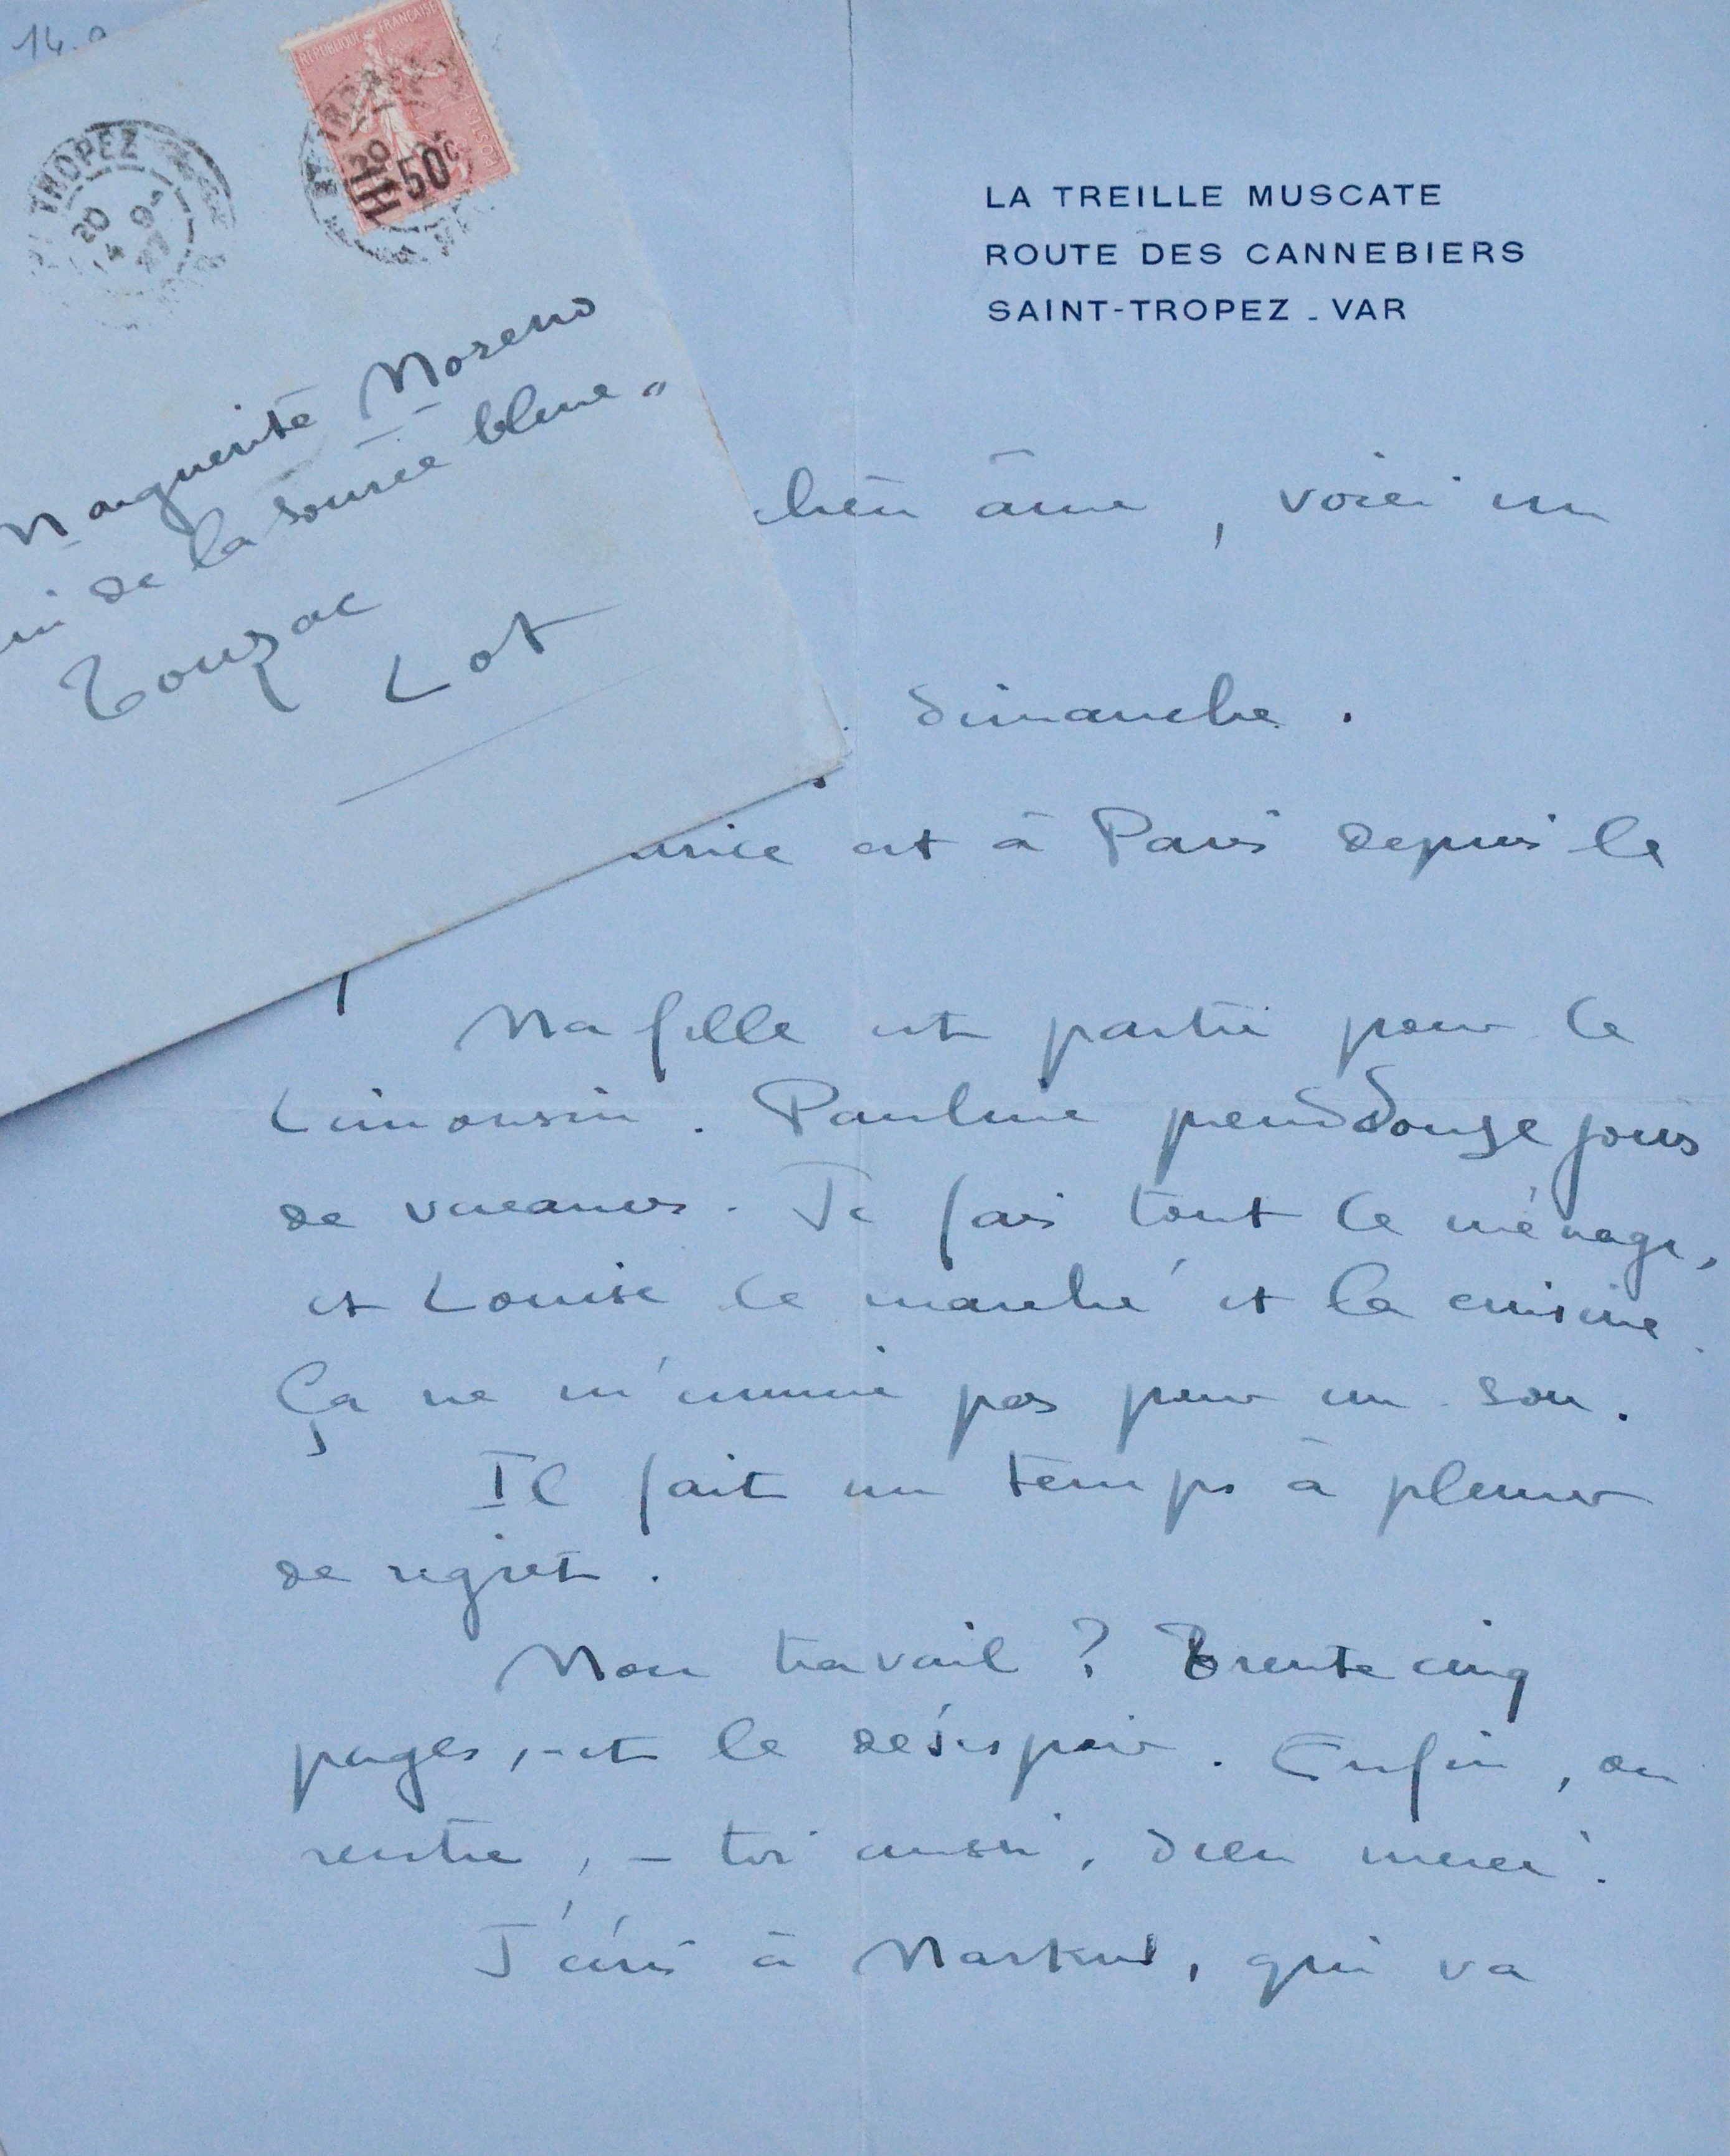 14.
RÉPUBLIQUE FRANÇAISE
POSTES
50c
TROPEZ
20
4 9
27
Marguerite Moreno
de la source bleue"
Touzac
Lot
LA TREILLE MUSCATE
ROUTE DES CANNEBIERS
SAINT-TROPEZ - VAR
âme, voici un
dimanche.
est à Paris depuis le
Ma fille est partie pour le
Limousin. Pauline prend douze jours
de vacances. Je fais tout le ménage,
et Louise le marché et la cuisine.
Ça ne m'ennuie pas pour un sou.
Il fait un temps à pleurer
de regret.
Mon travail? Trente cinq
pages, - et le désespoir. Enfin, on
rentre, - toi aussi, dieu merci.
J'écris à Markus, qui va